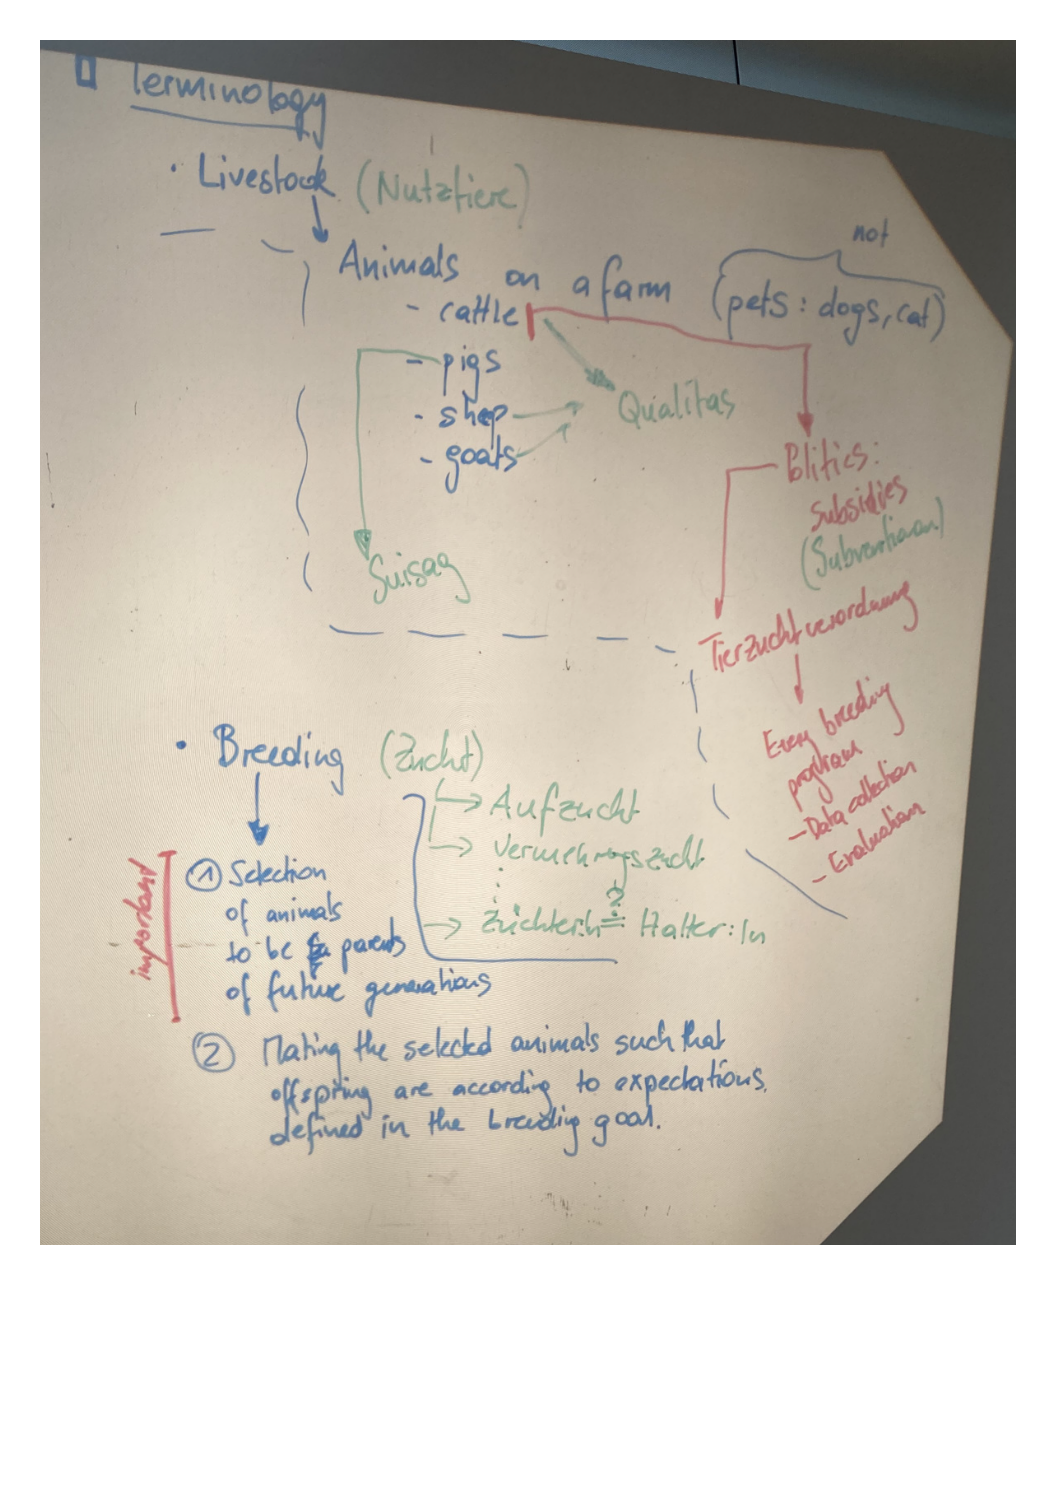 Terminology
• Livestock (Nutztiere)
not
Animals on a farm (pets: dogs, cat)
- cattle
- pigs
- shep
- goats
Qualitas
Politics:
Subsidies
(Subventionen)
Suisag
Tierzuchtverordnung
Every breeding
program
- Data collection
- Evaluation
• Breeding (Zucht)
→ Aufzucht
→ Vermehrungszucht
→ Züchter:In ≟ Halter:In
important
① Selection
of animals
to be parents
of future generations
② Mating the selected animals such that
offspring are according to expectations.
defined in the breeding goal.